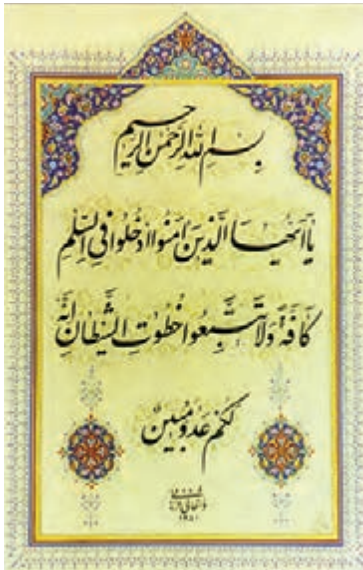 بسم الله الرحمن الرحیم
یا ایها الذین امنوا ادخلوا فی السلم
کافة ولا تتبعوا خطوت الشیطان انه
لکم عدو مبین